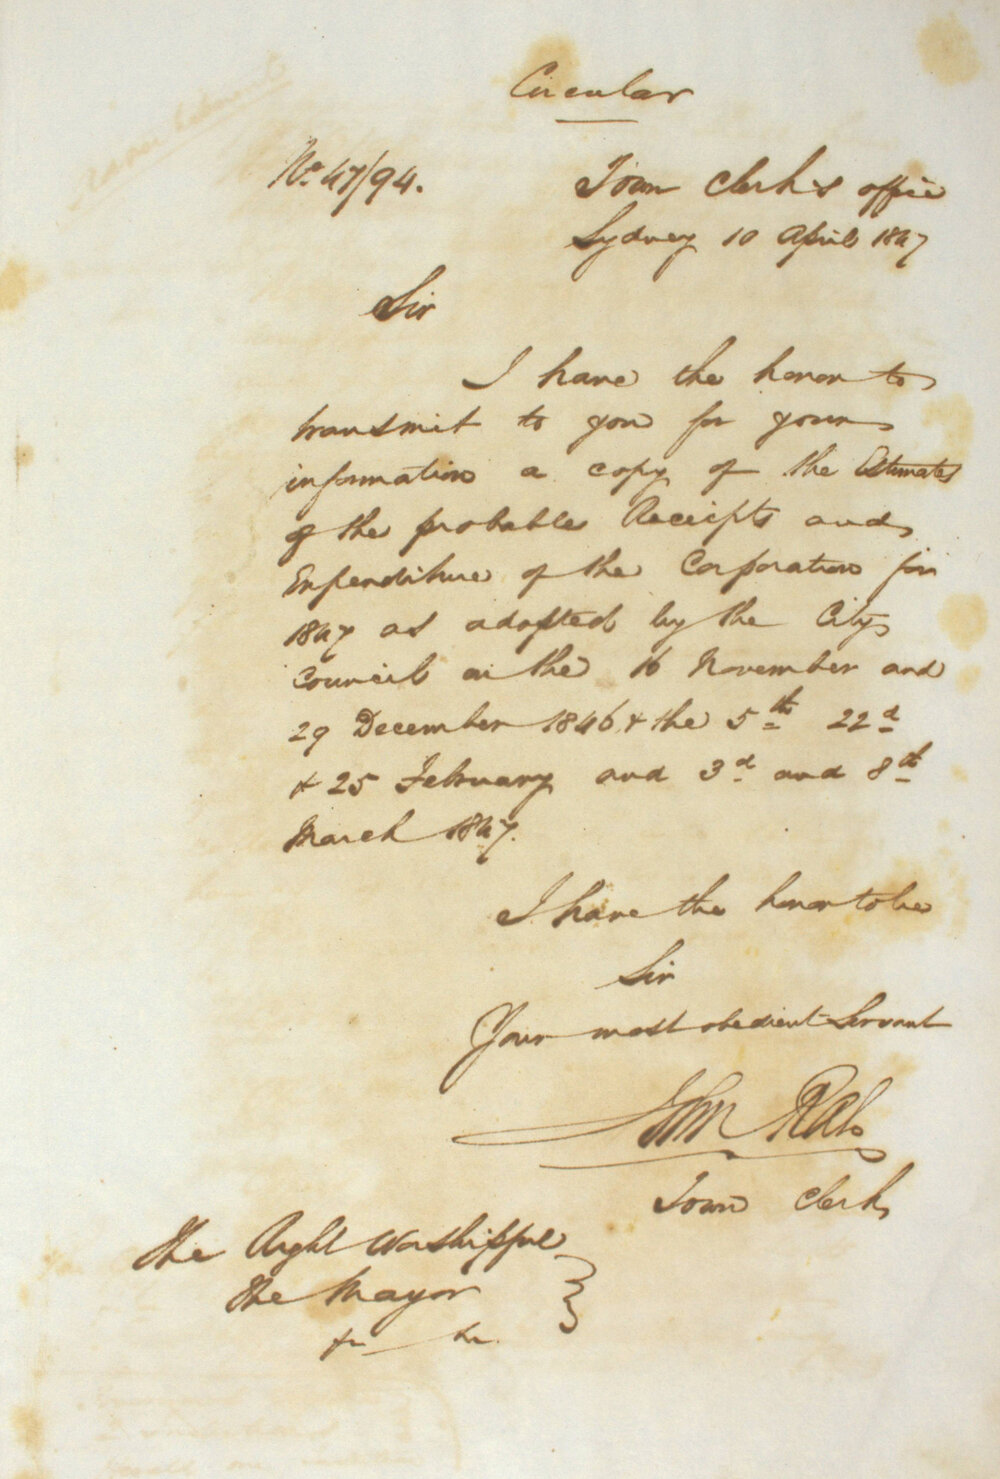 Circular
No. 47/94.
Town Clerk's office
Sydney 10 April 1847
Sir
I have the honor to
transmit to you for your
information a copy of the Estimates
of the probable Receipts and
Expenditure of the Corporation for
1847 as adopted by the City
Council on the 16 November and
29 December 1846 & the 5th 22d
& 25 February and 3d and 8th
March 1847.
I have the honor to be
Sir
Your most obedient Servant
John Rae
Town Clerk
The Right Worshipful
the Mayor
&c &c